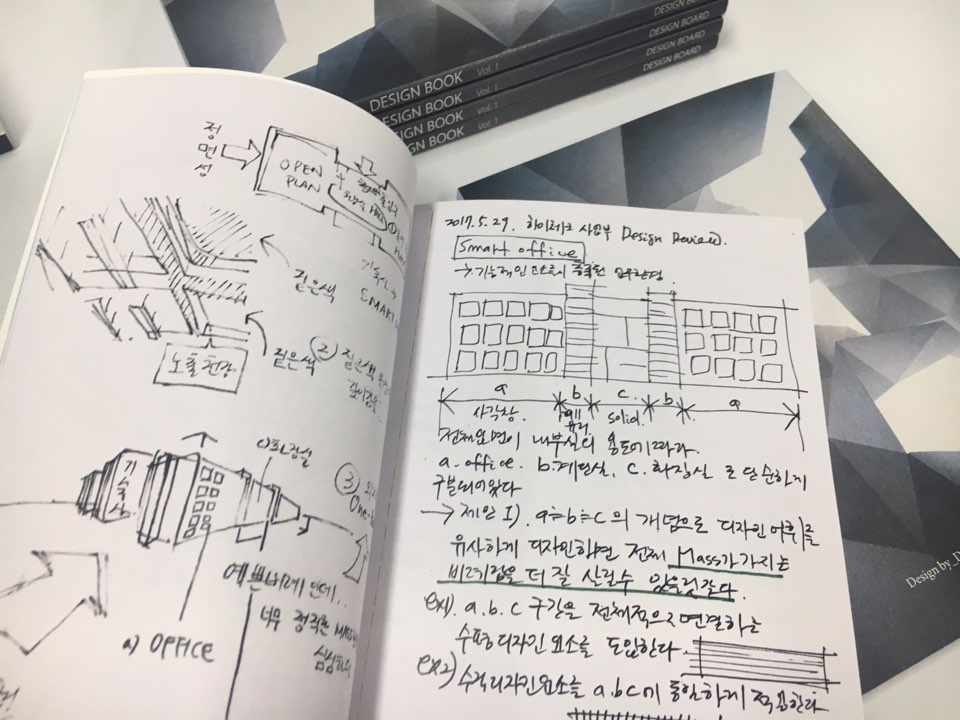 DESIGN BOARD
DESIGN BOARD
DESIGN BOARD
DESIGN BOOK Vol. 1
DESIGN BOOK Vol. 1
DESIGN BOOK Vol. 1
DESIGN BOOK Vol. 1
Design by_D
정면성
OPEN
PLAN
짙은색
SMART
노출천장
짙은색
② 짙은색
깊이감을
기숙사
③
One-
예쁜비례인데..
너무 정적인
심심하다
a) OFFICE
2017. 5. 29. 하이테크 사업부 Design Review.
Smart office
→ 기능적인 요소로
a b c. b a
사각창. 유리. solid.
전체입면이 내부실의 용도에따라
a. office. b. 계단실, c. 화장실 로 단순하게
구분되어있다
→ 제안 I). a≒b≒c 의 개념으로 디자인 어휘를
유사하게 디자인하면 전체 Mass가 가지는
비례감을 더 잘 살릴수 있을것같다.
ex1). a.b.c 구간을 전체적으로 연결하는
수평디자인 요소를 도입한다.
ex2) 수직디자인요소를 a.b.c에 동일하게 적용한다